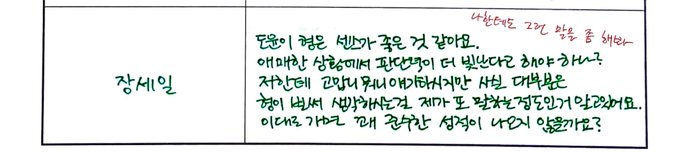 나한테도 그런 말을 좀 해봐라
장세일
도윤이 형은 센스가 좋은 것 같아요.
애매한 상황에서 판단력이 더 빛난다고 해야 하나?
저한테 고맙니 뭐니 얘기하시지만 사실 대부분은
형이 벌써 생각하시는걸 제가 또 말하는 정도인거 알고있어요.
이대로 가면 꽤 준수한 성적이 나오지 않을까요?